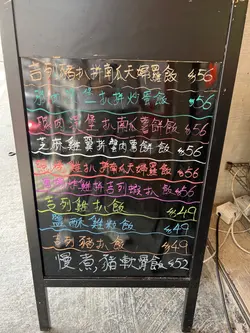 吉列豬扒拼南瓜天婦羅飯 $56
扒拼炒蛋飯 $56
堡扒南瓜薯餅飯 $56
芝麻雞翼拼蟹肉薯餅飯 $56
扒拼南瓜天婦羅飯 $56
雞拼吉列豬扒飯 $56
吉列雞扒飯 $49
鹽酥雞粒飯 $49
吉列豬扒飯 $49
慢煮豬軟骨飯 $52